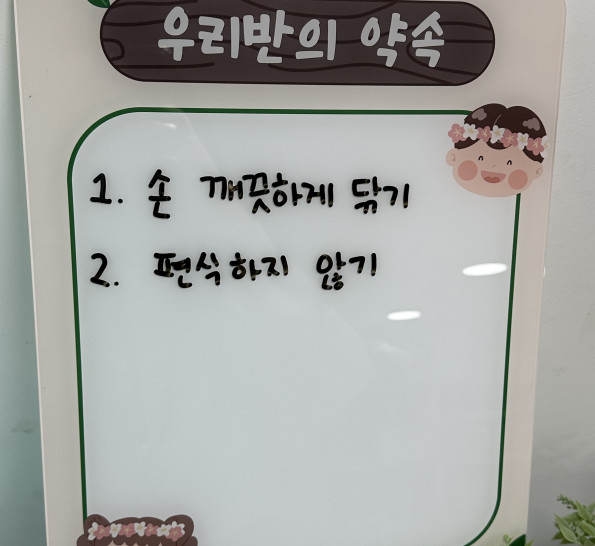 우리반의 약속
1. 손 깨끗하게 닦기
2. 편식하지 않기